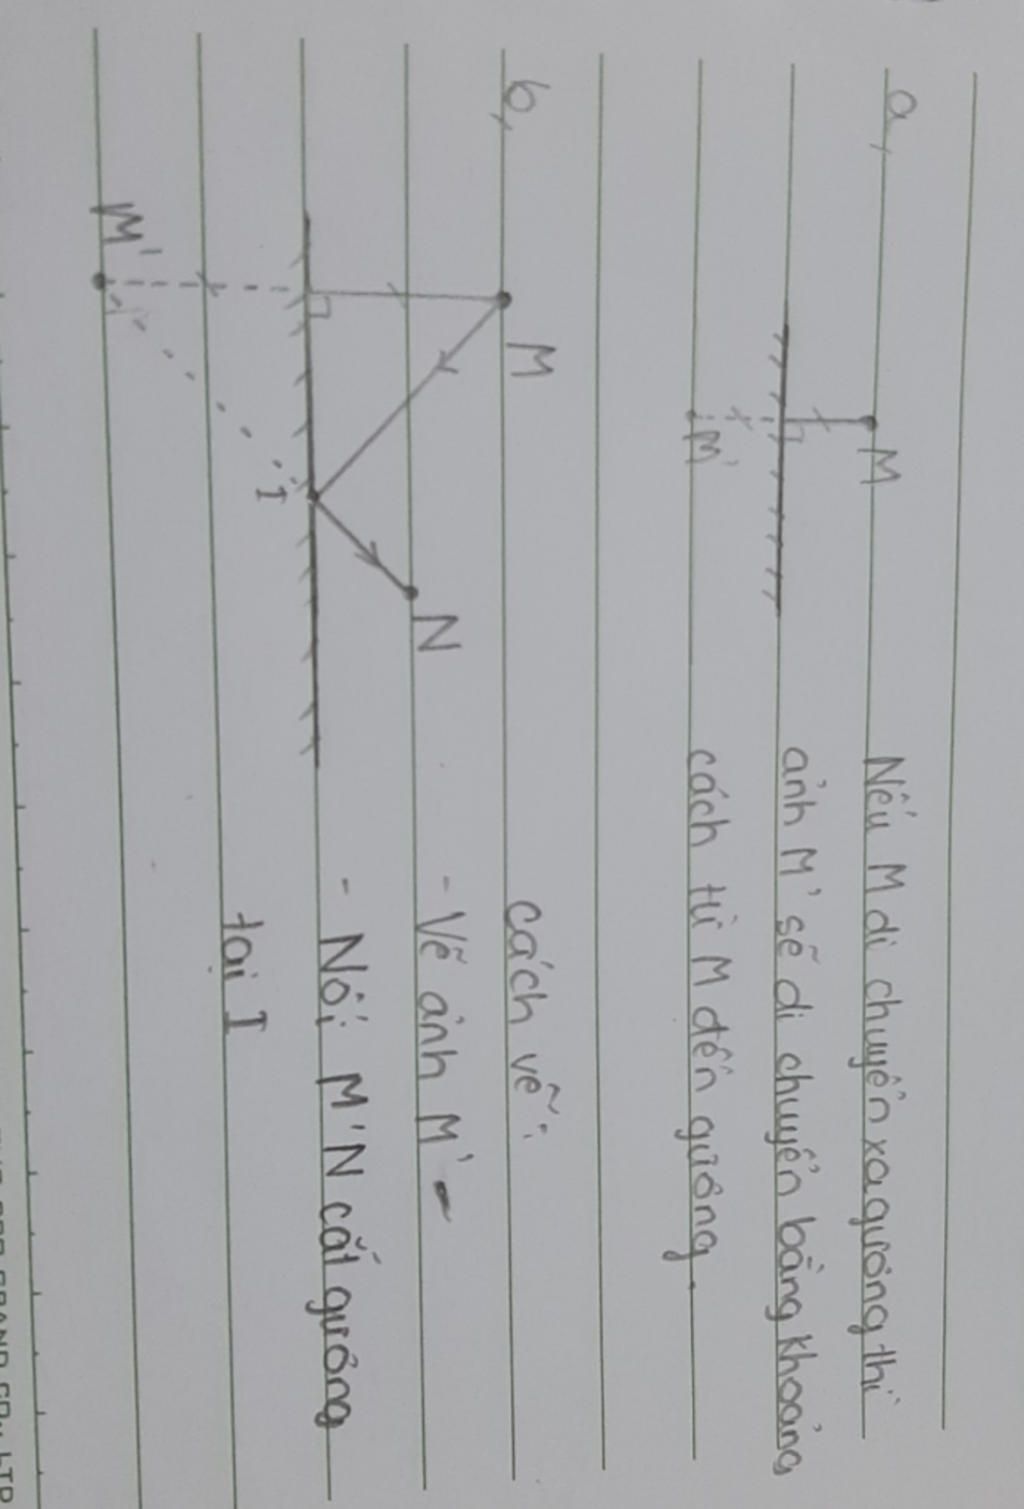 a,
M
M'
Nếu M di chuyển xa gương thì
ảnh M' sẽ di chuyển bằng khoảng
cách từ M đến gương.
b,
M
N
I
M'
cách vẽ:
- Vẽ ảnh M'
- Nối M'N cắt gương
tại I